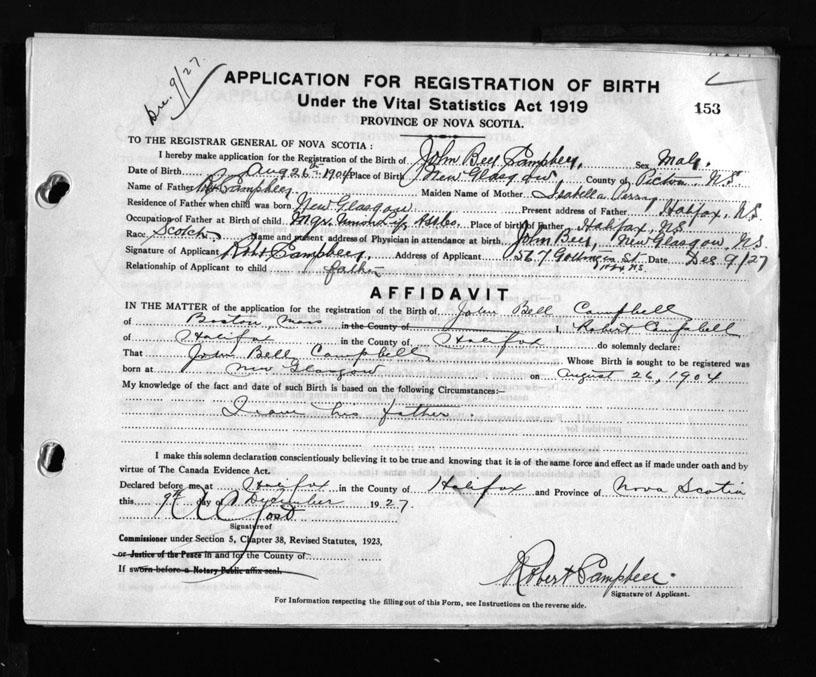 Dec. 9/27.
APPLICATION FOR REGISTRATION OF BIRTH
Under the Vital Statistics Act 1919
153
PROVINCE OF NOVA SCOTIA.
TO THE REGISTRAR GENERAL OF NOVA SCOTIA :
I hereby make application for the Registration of the Birth of John Bell Campbell Sex Male.
Date of Birth Aug 26th 1904 Place of Birth New Glasgow County of Pictou N.S.
Name of Father Campbell Maiden Name of Mother Isabella
Residence of Father when child was born New Glasgow Present address of Father Halifax, N.S.
Occupation of Father at Birth of child. Mgr. Place of birth of Father, Halifax, N.S.
Race. Scotch Name and present address of Physician in attendance at birth John Bell, New Glasgow, N.S.
Signature of Applicant Robt Campbell Address of Applicant 567 Gottingen St Date Dec. 9/27
Relationship of Applicant to child father
AFFIDAVIT
IN THE MATTER of the application for the registration of the Birth of John Bell Campbell
of Boston, Mass in the County of I, Robert Campbell
of Halifax in the County of Halifax do solemnly declare:
That John Bell Campbell Whose Birth is sought to be registered was
born at New Glasgow on August 26, 1904
My knowledge of the fact and date of such Birth is based on the following Circumstances:—
his father.
I make this solemn declaration conscientiously believing it to be true and knowing that it is of the same force and effect as if made under oath and by
virtue of The Canada Evidence Act.
Declared before me at Halifax in the County of Halifax and Province of Nova Scotia
this 9th day of December 1927
Signature of
Commissioner under Section 5, Chapter 38, Revised Statutes, 1923,
or Justice of the Peace in and for the County of
If sworn before a Notary Public affix seal.
Robert Campbell.
Signature of Applicant.
For Information respecting the filling out of this Form, see Instructions on the reverse side.